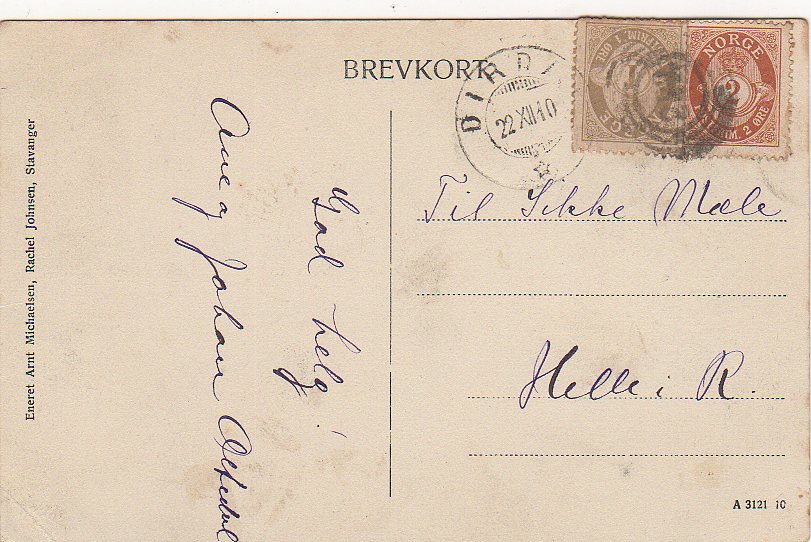 BREVKORT
DIRDAL
22 XII 10
NORGE
2
POSTFRIM. 2 ØRE
Til Sikke Mæle
Helle i R.
God helg!
Ane og Johan
Eneret Arnt Michaelsen, Rachel Johnsen, Stavanger
A 3121 10